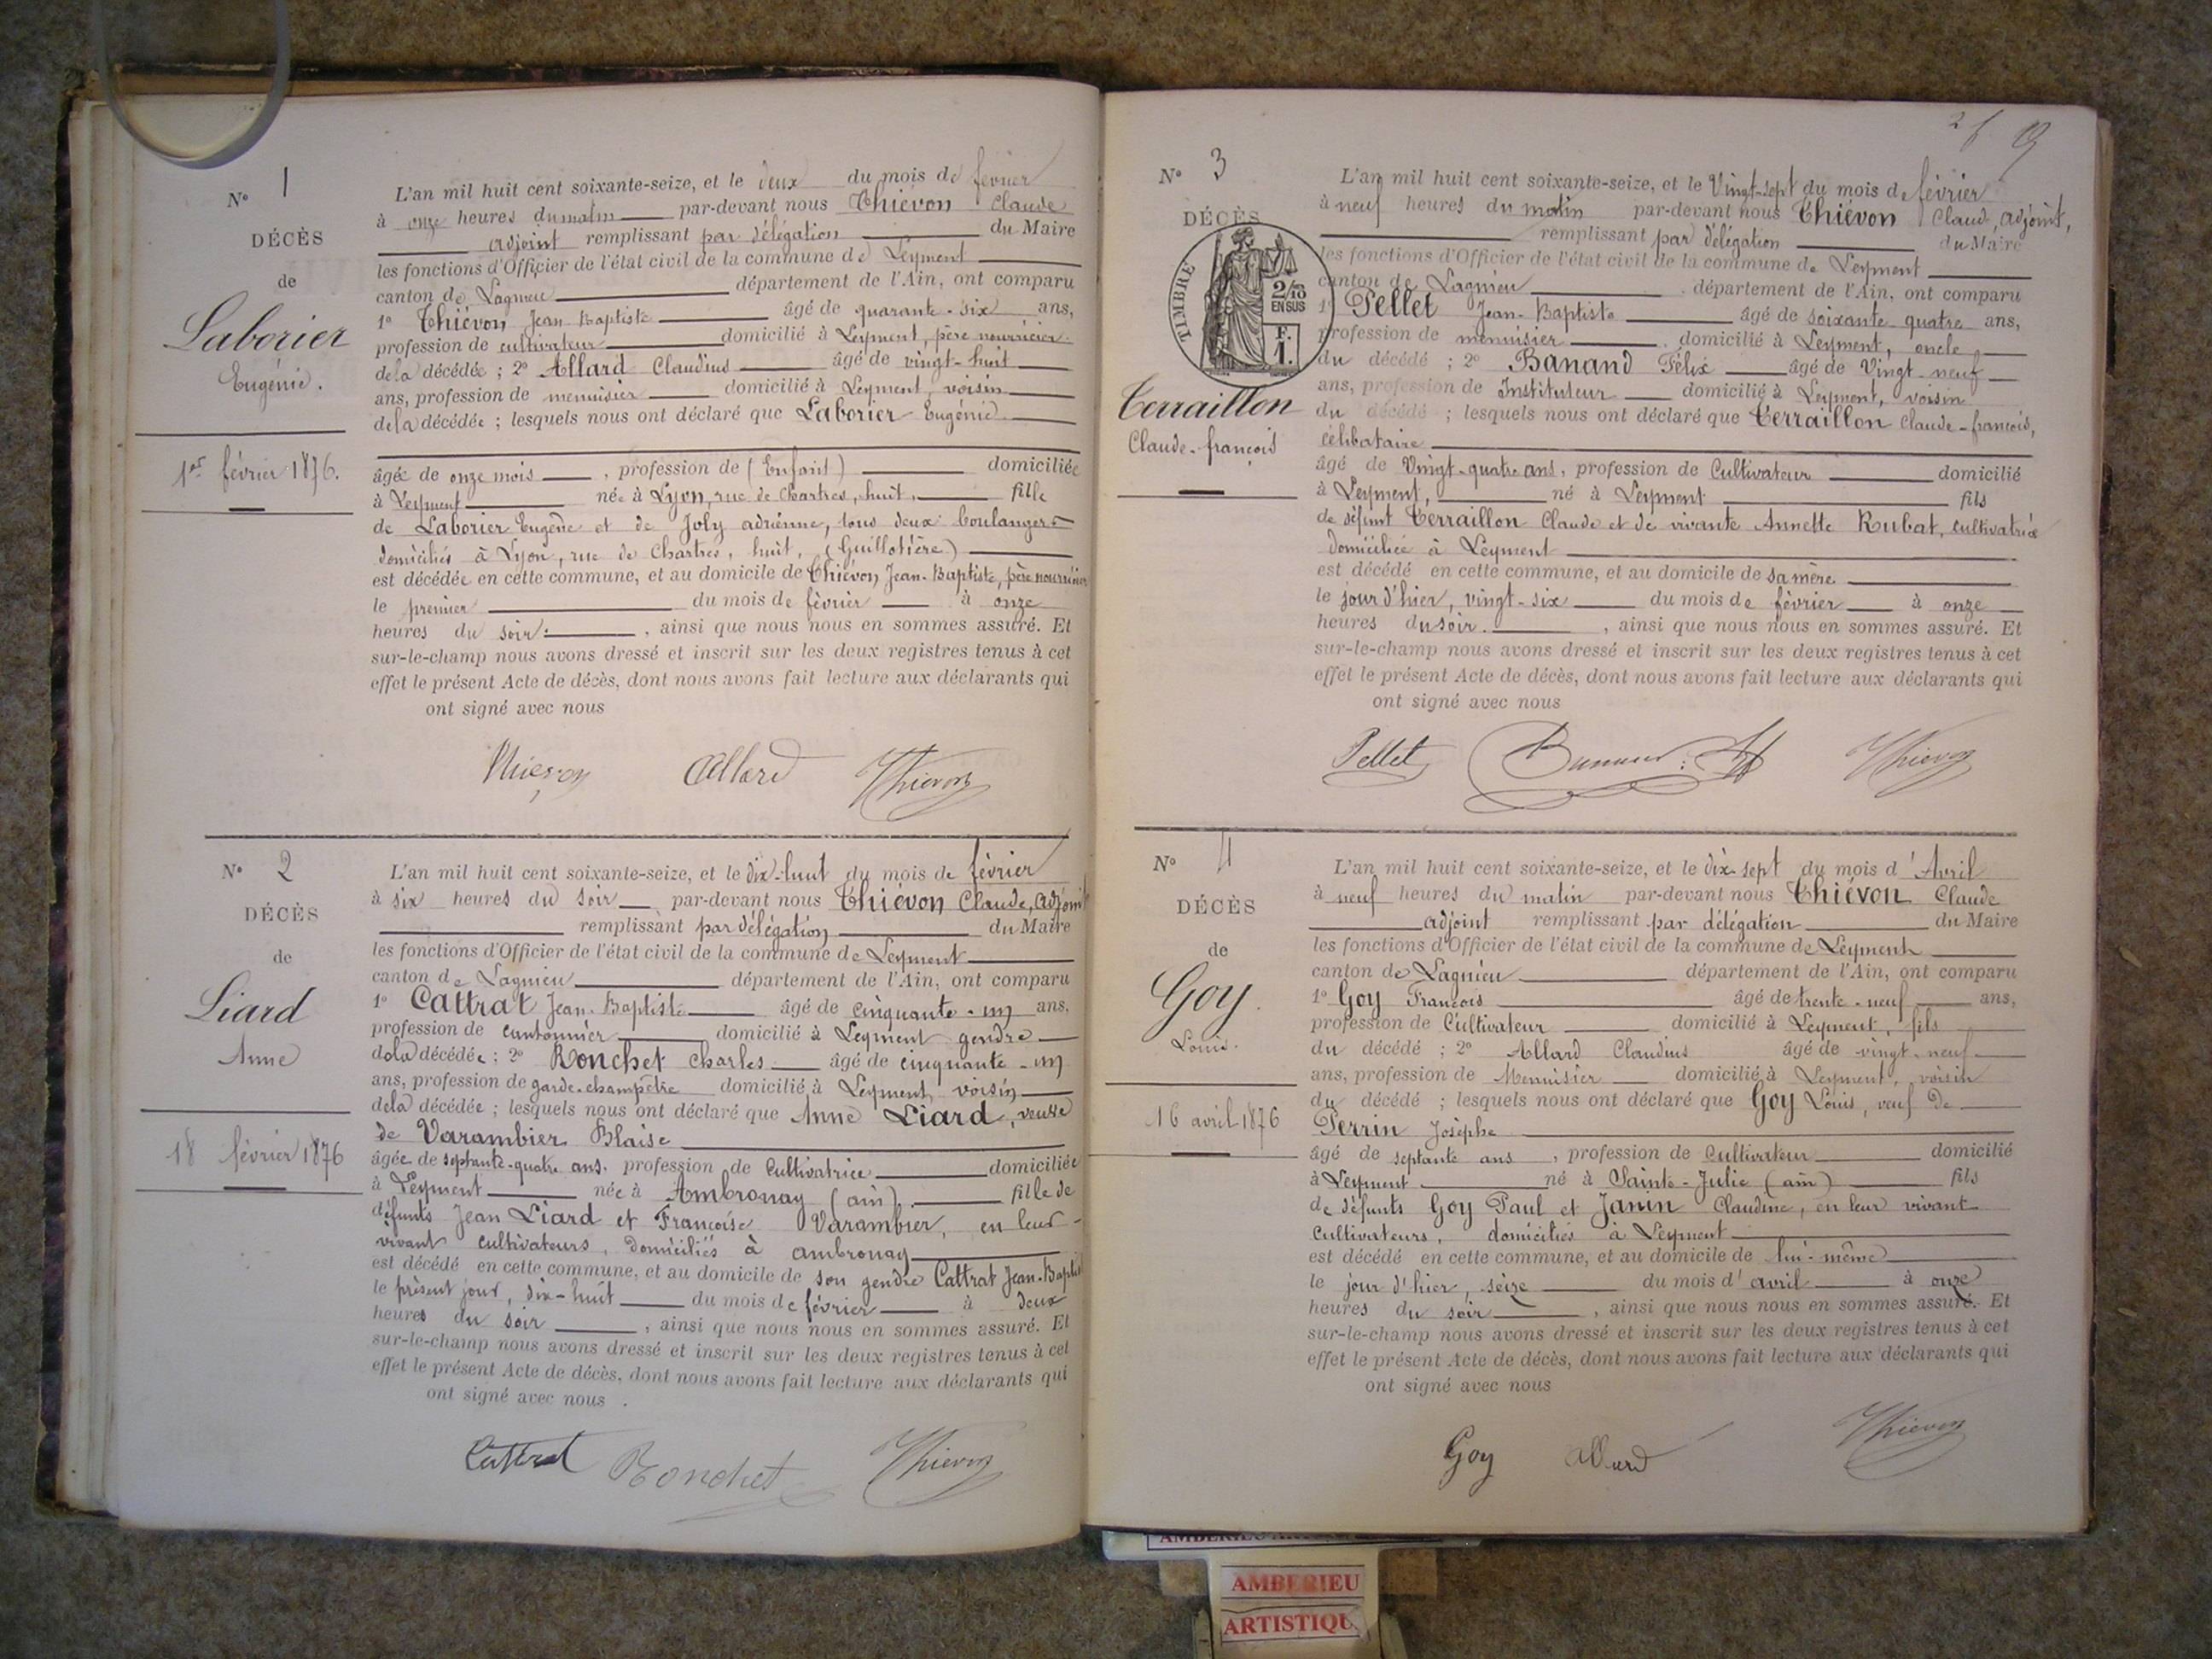 N° 1
DÉCÈS
de
Laborier
Eugénie.
1er février 1876.
L'an mil huit cent soixante-seize, et le deux du mois de février
à onze heures du matin par-devant nous Thiévon Claude
adjoint remplissant par délégation du Maire
les fonctions d'Officier de l'état civil de la commune de Leyment
canton de Lagnieu département de l'Ain, ont comparu
1° Thiévon Jean-Baptiste âgé de quarante-six ans,
profession de cultivateur domicilié à Leyment, père nourricier
de la décédée ; 2° Allard Claudius âgé de vingt-huit
ans, profession de menuisier domicilié à Leyment, voisin
de la décédée ; lesquels nous ont déclaré que Laborier Eugénie
âgée de onze mois, profession de (Enfant) domiciliée
à Leyment née à Lyon, rue de Chartres, huit, fille
de Laborier Eugène et de Joly adrienne, tous deux boulangers
domiciliés à Lyon, rue de Chartres, huit, (Guillotière)
est décédée en cette commune, et au domicile de Thiévon Jean-Baptiste, père nourricier
le premier du mois de février à onze
heures du soir, ainsi que nous nous en sommes assuré. Et
sur-le-champ nous avons dressé et inscrit sur les deux registres tenus à cet
effet le présent Acte de décès, dont nous avons fait lecture aux déclarants qui
ont signé avec nous
Thievon Allard Thievon
N° 2
DÉCÈS
de
Liard
Anne
18 février 1876
L'an mil huit cent soixante-seize, et le dix-huit du mois de février
à six heures du soir par-devant nous Thiévon Claude, adjoint
remplissant par délégation du Maire
les fonctions d'Officier de l'état civil de la commune de Leyment
canton de Lagnieu département de l'Ain, ont comparu
1° Cattrat Jean-Baptiste âgé de cinquante-un ans,
profession de cantonnier domicilié à Leyment gendre
de la décédée ; 2° Ronchet Charles âgé de cinquante-un
ans, profession de garde-champêtre domicilié à Leyment, voisin
de la décédée ; lesquels nous ont déclaré que Anne Liard, veuve
de Varambier Blaise
âgée de septante-quatre ans, profession de Cultivatrice domiciliée
à Leyment née à Ambronay (ain), fille de
défunts Jean Liard et Françoise Varambier, en leur
vivant cultivateurs, domiciliés à ambronay
est décédé en cette commune, et au domicile de son gendre Cattrat Jean-Baptiste
le présent jour, dix-huit du mois de février à deux
heures du soir, ainsi que nous nous en sommes assuré. Et
sur-le-champ nous avons dressé et inscrit sur les deux registres tenus à cet
effet le présent Acte de décès, dont nous avons fait lecture aux déclarants qui
ont signé avec nous.
Cattrat Ronchet Thievon
N° 3
DÉCÈS
TIMBRE
2/10
EN SUS
F.
1.
Terraillon
Claude-françois
L'an mil huit cent soixante-seize, et le Vingt-sept du mois de février
à neuf heures du matin par-devant nous Thiévon Claud, adjoint,
remplissant par délégation du Maire
les fonctions d'Officier de l'état civil de la commune de Leyment
canton de Lagnieu département de l'Ain, ont comparu
1° Pellet Jean-Baptiste âgé de soixante quatre ans,
profession de menuisier domicilié à Leyment, oncle
du décédé ; 2° Banand Félix âgé de Vingt-neuf
ans, profession de Instituteur domicilié à Leyment, voisin
du décédé ; lesquels nous ont déclaré que Terraillon Claude-françois,
célibataire
âgé de Vingt-quatre ans, profession de Cultivateur domicilié
à Leyment, né à Leyment fils
de défunt Terraillon Claude et de vivante Annette Rubat, cultivatrice
domiciliée à Leyment
est décédé en cette commune, et au domicile de sa mère
le jour d'hier, vingt-six du mois de février à onze
heures du soir, ainsi que nous nous en sommes assuré. Et
sur-le-champ nous avons dressé et inscrit sur les deux registres tenus à cet
effet le présent Acte de décès, dont nous avons fait lecture aux déclarants qui
ont signé avec nous
Pellet Banand Thievon
N° 4
DÉCÈS
de
Goy
Louis.
16 avril 1876
L'an mil huit cent soixante-seize, et le dix-sept du mois d'Avril
à neuf heures du matin par-devant nous Thiévon Claude
adjoint remplissant par délégation du Maire
les fonctions d'Officier de l'état civil de la commune de Leyment
canton de Lagnieu département de l'Ain, ont comparu
1° Goy François âgé de trente-neuf ans,
profession de Cultivateur domicilié à Leyment, fils
du décédé ; 2° Allard Claudius âgé de vingt-neuf
ans, profession de Menuisier domicilié à Leyment, voisin
du décédé ; lesquels nous ont déclaré que Goy Louis, veuf de
Perrin Josephe
âgé de septante ans, profession de Cultivateur domicilié
à Leyment né à Sainte-Julie (ain) fils
de défunts Goy Paul et Janin Claudine, en leur vivant
Cultivateurs, domiciliés à Leyment
est décédé en cette commune, et au domicile de lui-même
le jour d'hier, seize du mois d'avril à onze
heures du soir, ainsi que nous nous en sommes assuré. Et
sur-le-champ nous avons dressé et inscrit sur les deux registres tenus à cet
effet le présent Acte de décès, dont nous avons fait lecture aux déclarants qui
ont signé avec nous
Goy Allard Thievon
AMBERIEU
ARTISTIQU